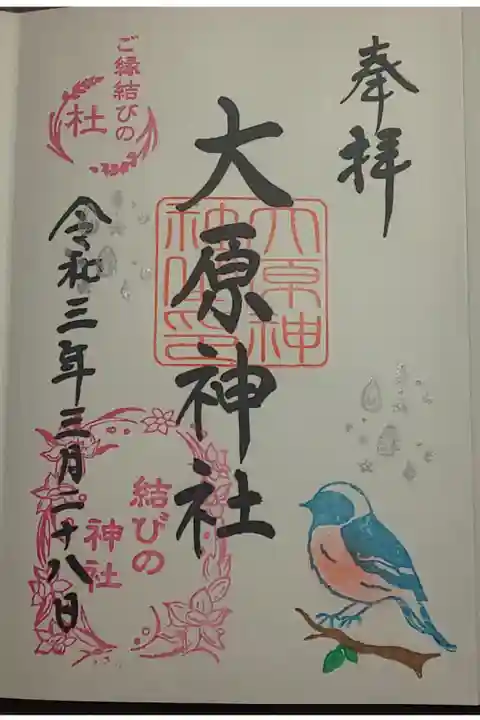 奉拝
大原神社
大原神
社之印
ご縁結びの
杜
令和三年三月二十八日
結びの
神社